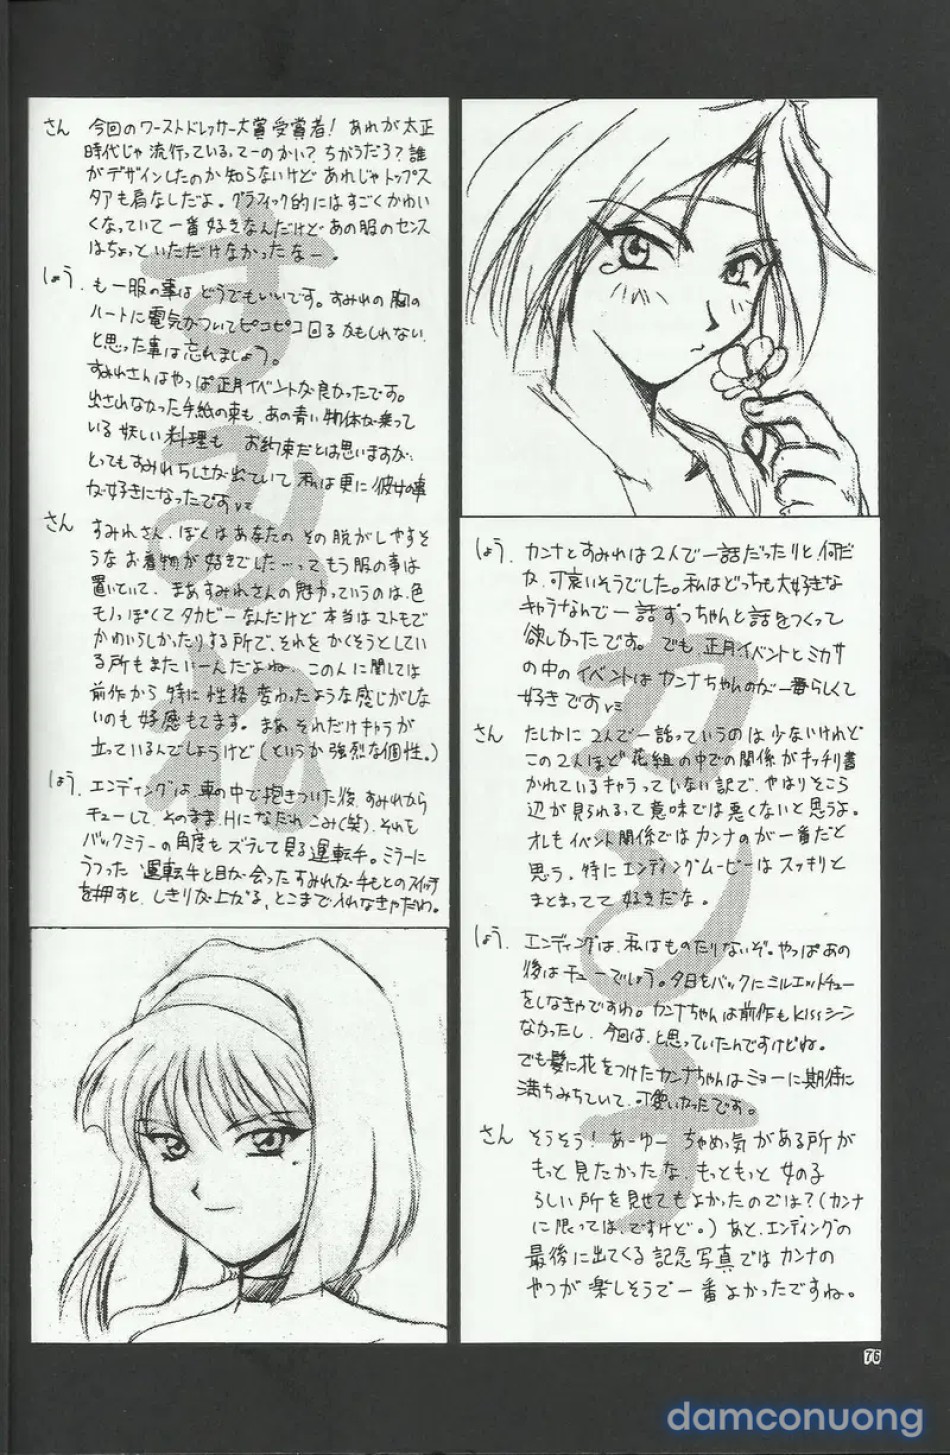 さん 今回のワーストドレッサー大賞受賞者! あれが太正
時代じゃ流行っている、てーのかい? ちがうだろ? 誰
がデザインしたのか知らないけど あれじゃトップス
タアも肩なしだよ。グラフィック的にはすごくかわい
くなっていて一番好きなんだけど あの服のセンス
はちょっといただけなかったなー。
しょう. もー服の事はどうでもいいです。すみれの胸の
ハートに電気がついてピコピコ回るかもしれない
と思った事は忘れましょう。
すみれさんはやっぱ正月イベントが良かったです。
出されなかった手紙の束も、あの青い物体が乗って
いる妖しい料理も お約束だとは思いますが、
とってもすみれらしさが出ていて私は更に彼女の事
が好きになったです
さん すみれさん、ぼくはあなたの その脱がしやすそ
うな お着物が好きでした…って もう服の事は
置いといて、まあすみれさんの魅力っていうのは、色
モノっぽくてタカビーなんだけど 本当はストモで
かわいらしかったりする所で、それをかくそうとしてい
る所もまたいーんだよね。この人に関しては
前作から特に性格変わったような感じがしな
いのも好感もてます。まあそれだけキャラが
立っているんでしょうけど(というか強烈な個性。)
しょう. エンディングは、車の中で抱きついた後、すみれから
チューして、そのまま、Hになだれこみ(笑)、それも
バックミラーの角度もズラして見る運転手。ミラーに
うつった 運転手と目が会ったすみれが手もとのスイッチ
を押すと、しきりが上がる、とこまで入れなきゃだわ。
しょう. カンナとすみれは2人で一話だったりと、何だ
か、可哀いそうでした。私はどっちも大好きな
キャラなんで一話ずっちゃんと話をつくって
欲しかったです。でも 正月イベントとミカサ
の中のイベントはカンナちゃんのが一番らしくて
好きです
さん たしかに2人で一話っていうのは少ないけれど
この2人ほど花組の中での関係がキッチリ書
かれているキャラっていない訳で、やはりそこら
辺が見られるって意味では悪くないと思うよ。
オレもイベント関係ではカンナのが一番だと
思う。特にエンディングムービーはスッキリと
まとまってて好きだな。
しょう. エンディングは、私はものたりないぞ。やっぱあの
後はチューでしょう。夕日をバックにシルエットチュー
をしなきゃですわ。カンナちゃんは前作もkissシーン
なかったし、今回は、と思っていたんですけどね。
でも髪に花をつけたカンナちゃんはミョーに期待に
満ちみちていて、可愛いかったです。
さん そうそう! あーゆー ちゃめっ気がある所が
もっと見たかったな。もっともっと 女の子
らしい所を見せてもよかったのでは?(カンナ
に限っては、ですけど。)あと、エンディングの
最後に出てくる記念写真ではカンナの
やつが楽しそうで一番よかったですね。
すみれ
カンナ
76
damconuong